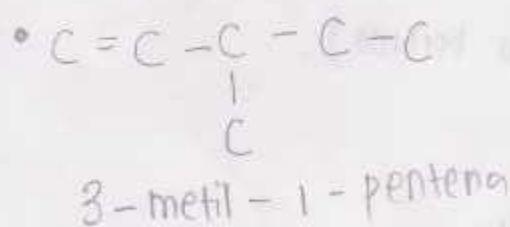 • C = C - C - C - C
|
C
3-metil-1-pentena